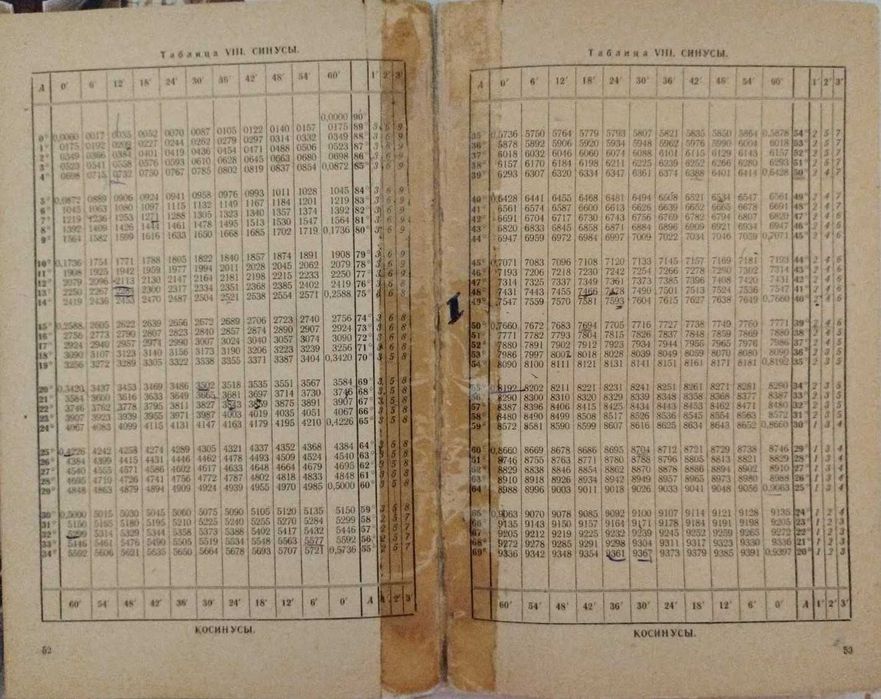 Таблица VIII. СИНУСЫ.
A 0' 6' 12' 18' 24' 30' 36' 42' 48' 54' 60' 1' 2' 3'
0,0000 90°
0° 0,0000 0017 0035 0052 0070 0087 0105 0122 0140 0157 0175 89° 3 6 9
1° 0175 0192 0209 0227 0244 0262 0279 0297 0314 0332 0349 88° 3 6 9
2° 0349 0366 0384 0401 0419 0436 0454 0471 0488 0506 0523 87° 3 6 9
3° 0523 0541 0558 0576 0593 0610 0628 0645 0663 0680 0698 86° 3 6 9
4° 0698 0715 0732 0750 0767 0785 0802 0819 0837 0854 0,0872 85° 3 6 9
5° 0,0872 0889 0906 0924 0941 0958 0976 0993 1011 1028 1045 84° 3 6 9
6° 1045 1063 1080 1097 1115 1132 1149 1167 1184 1201 1219 83° 3 6 9
7° 1219 1236 1253 1271 1288 1305 1323 1340 1357 1374 1392 82° 3 6 9
8° 1392 1409 1426 1444 1461 1478 1495 1513 1530 1547 1564 81° 3 6 9
9° 1564 1582 1599 1616 1633 1650 1668 1685 1702 1719 0,1736 80° 3 6 9
10° 0,1736 1754 1771 1788 1805 1822 1840 1857 1874 1891 1908 79° 3 6 9
11° 1908 1925 1942 1959 1977 1994 2011 2028 2045 2062 2079 78° 3 6 9
12° 2079 2096 2113 2130 2147 2164 2181 2198 2215 2233 2250 77° 3 6 9
13° 2250 2267 2284 2300 2317 2334 2351 2368 2385 2402 2419 76° 3 6 8
14° 2419 2436 2453 2470 2487 2504 2521 2538 2554 2571 0,2588 75° 3 6 8
15° 0,2588 2605 2622 2639 2656 2672 2689 2706 2723 2740 2756 74° 3 6 8
16° 2756 2773 2790 2807 2823 2840 2857 2874 2890 2907 2924 73° 3 6 8
17° 2924 2940 2957 2974 2990 3007 3024 3040 3057 3074 3090 72° 3 6 8
18° 3090 3107 3123 3140 3156 3173 3190 3206 3223 3239 3256 71° 3 6 8
19° 3256 3272 3289 3305 3322 3338 3355 3371 3387 3404 0,3420 70° 3 5 8
20° 0,3420 3437 3453 3469 3486 3502 3518 3535 3551 3567 3584 69° 3 5 8
21° 3584 3600 3616 3633 3649 3665 3681 3697 3714 3730 3746 68° 3 5 8
22° 3746 3762 3778 3795 3811 3827 3843 3859 3875 3891 3907 67° 3 5 8
23° 3907 3923 3939 3955 3971 3987 4003 4019 4035 4051 4067 66° 3 5 8
24° 4067 4083 4099 4115 4131 4147 4163 4179 4195 4210 0,4226 65° 3 5 8
25° 0,4226 4242 4258 4274 4289 4305 4321 4337 4352 4368 4384 64° 3 5 8
26° 4384 4399 4415 4431 4446 4462 4478 4493 4509 4524 4540 63° 3 5 8
27° 4540 4555 4571 4586 4602 4617 4633 4648 4664 4679 4695 62° 3 5 8
28° 4695 4710 4726 4741 4756 4772 4787 4802 4818 4833 4848 61° 3 5 8
29° 4848 4863 4879 4894 4909 4924 4939 4955 4970 4985 0,5000 60° 3 5 8
30° 0,5000 5015 5030 5045 5060 5075 5090 5105 5120 5135 5150 59° 3 5 8
31° 5150 5165 5180 5195 5210 5225 5240 5255 5270 5284 5299 58° 2 5 7
32° 5299 5314 5329 5344 5358 5373 5388 5402 5417 5432 5446 57° 2 5 7
33° 5446 5461 5476 5490 5505 5519 5534 5548 5563 5577 5592 56° 2 5 7
34° 5592 5606 5621 5635 5650 5664 5678 5693 5707 5721 0,5736 55° 2 5 7
60' 54' 48' 42' 36' 30' 24' 18' 12' 6' 0' A 1' 2' 3'
КОСИНУСЫ.
52
Таблица VIII. СИНУСЫ.
A 0' 6' 12' 18' 24' 30' 36' 42' 48' 54' 60' 1' 2' 3'
35° 0,5736 5750 5764 5779 5793 5807 5821 5835 5850 5864 0,5878 54° 2 5 7
36° 5878 5892 5906 5920 5934 5948 5962 5976 5990 6004 6018 53° 2 5 7
37° 6018 6032 6046 6060 6074 6088 6101 6115 6129 6143 6157 52° 2 5 7
38° 6157 6170 6184 6198 6211 6225 6239 6252 6266 6280 6293 51° 2 5 7
39° 6293 6307 6320 6334 6347 6361 6374 6388 6401 6414 0,6428 50° 2 4 7
40° 0,6428 6441 6455 6468 6481 6494 6508 6521 6534 6547 6561 49° 2 4 7
41° 6561 6574 6587 6600 6613 6626 6639 6652 6665 6678 6691 48° 2 4 7
42° 6691 6704 6717 6730 6743 6756 6769 6782 6794 6807 6820 47° 2 4 6
43° 6820 6833 6845 6858 6871 6884 6896 6909 6921 6934 6947 46° 2 4 6
44° 6947 6959 6972 6984 6997 7009 7022 7034 7046 7059 0,7071 45° 2 4 6
45° 0,7071 7083 7096 7108 7120 7133 7145 7157 7169 7181 7193 44° 2 4 6
46° 7193 7206 7218 7230 7242 7254 7266 7278 7290 7302 7314 43° 2 4 6
47° 7314 7325 7337 7349 7361 7373 7385 7396 7408 7420 7431 42° 2 4 6
48° 7431 7443 7455 7466 7478 7490 7501 7513 7524 7536 7547 41° 2 4 6
49° 7547 7559 7570 7581 7593 7604 7615 7627 7638 7649 0,7660 40° 2 4 6
50° 0,7660 7672 7683 7694 7705 7716 7727 7738 7749 7760 7771 39° 2 4 6
51° 7771 7782 7793 7804 7815 7826 7837 7848 7859 7869 7880 38° 2 4 5
52° 7880 7891 7902 7912 7923 7934 7944 7955 7965 7976 7986 37° 2 4 5
53° 7986 7997 8007 8018 8028 8039 8049 8059 8070 8080 8090 36° 2 3 5
54° 8090 8100 8111 8121 8131 8141 8151 8161 8171 8181 0,8192 35° 2 3 5
55° 8192 8202 8211 8221 8231 8241 8251 8261 8271 8281 8290 34° 2 3 5
56° 8290 8300 8310 8320 8329 8339 8348 8358 8368 8377 8387 33° 2 3 5
57° 8387 8396 8406 8415 8425 8434 8443 8453 8462 8471 8480 32° 2 3 5
58° 8480 8490 8499 8508 8517 8526 8536 8545 8554 8563 8572 31° 2 3 5
59° 8572 8581 8590 8599 8607 8616 8625 8634 8643 8652 0,8660 30° 1 3 4
60° 0,8660 8669 8678 8686 8695 8704 8712 8721 8729 8738 8746 29° 1 3 4
61° 8746 8755 8763 8771 8780 8788 8796 8805 8813 8821 8829 28° 1 3 4
62° 8829 8838 8846 8854 8862 8870 8878 8886 8894 8902 8910 27° 1 3 4
63° 8910 8918 8926 8934 8942 8949 8957 8965 8973 8980 8988 26° 1 3 4
64° 8988 8996 9003 9011 9018 9026 9033 9041 9048 9056 0,9063 25° 1 3 4
65° 0,9063 9070 9078 9085 9092 9100 9107 9114 9121 9128 9135 24° 1 2 4
66° 9135 9143 9150 9157 9164 9171 9178 9184 9191 9198 9205 23° 1 2 3
67° 9205 9212 9219 9225 9232 9239 9245 9252 9259 9265 9272 22° 1 2 3
68° 9272 9278 9285 9291 9298 9304 9311 9317 9323 9330 9336 21° 1 2 3
69° 9336 9342 9348 9354 9361 9367 9373 9379 9385 9391 0,9397 20° 1 2 3
60' 54' 48' 42' 36' 30' 24' 18' 12' 6' 0' A 1' 2' 3'
КОСИНУСЫ.
53